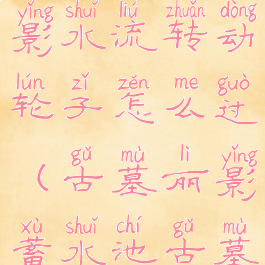 yǐng shuǐ liú zhuǎn dòng
影水流转动
lún zǐ zěn me guò
轮子怎么过
gǔ mù lì yǐng
（古墓丽影
xù shuǐ chí gǔ mù
蓄水池古墓